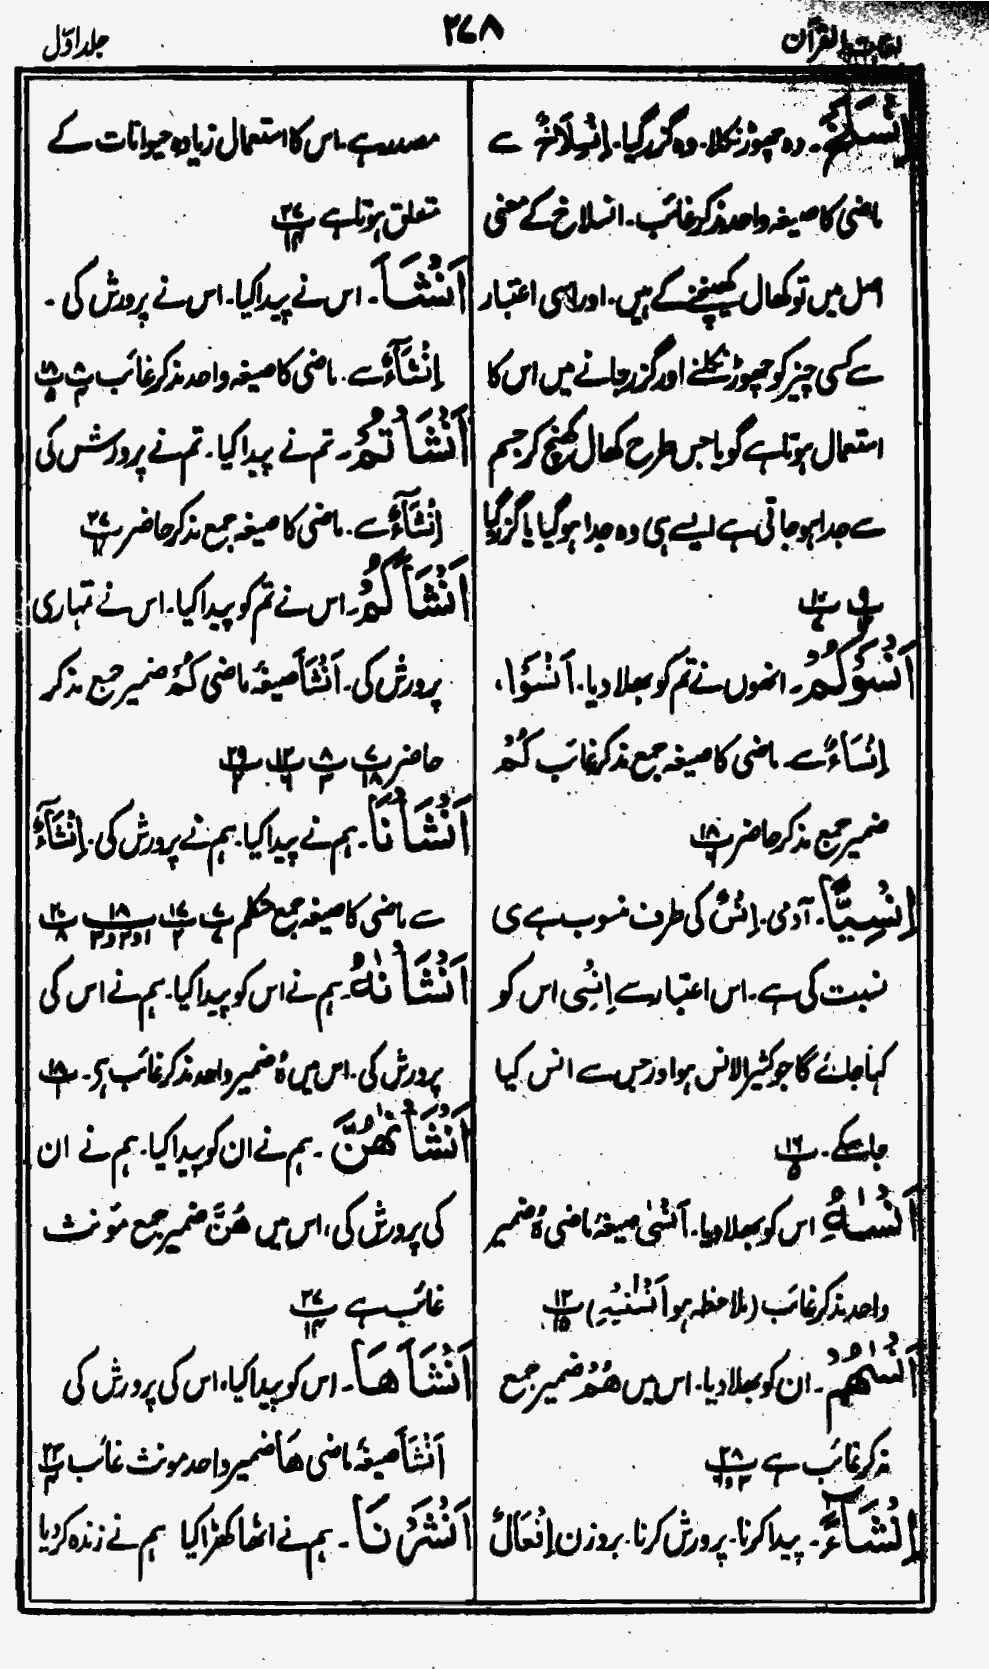 لغات القرآن
۲۷۸
جلد اوّل
اِنْسَلَخَ۔ وہ چھوڑ نکلا۔ وہ گزر گیا۔ اِنْسِلَاخٌ سے
ماضی کا صیغہ واحد مذکر غائب۔ انسلاخ کے معنی
اصل میں تو کھال کھینچنے کے ہیں۔ اور اسی اعتبار
سے کسی چیز کو چھوڑ نکلنے اور گزر جانے میں اس کا
استعمال ہوتا ہے گویا جس طرح کھال کھنچ کر جسم
سے جدا ہو جاتی ہے ایسے ہی وہ جدا ہو گیا یا گزر گیا
پ۹ پ۱۰
اَنْسَوْكُمْ۔ انھوں نے تم کو بھلا دیا۔ اَنْسَوْا،
اِنْسَاءٌ سے ماضی کا صیغہ جمع مذکر غائب كُمْ
ضمیر جمع مذکر حاضر پ۱۸
اِنْسِيًّا۔ آدمی۔ اِنْسٌ کی طرف منسوب ہے ی
نسبت کی ہے۔ اس اعتبار سے اِنْسِی اس کو
کہا جائے گا جو کثیر الانس ہو اور جس سے انس کیا
جا سکے۔ پ۱۶
اَنْسٰىهُ اس کو بھلا دیا۔ اَنْسٰى صیغۂ ماضی هُ ضمیر
واحد مذکر غائب (ملاحظہ ہو اَنْسٰنِيْهِ) پ۱۲
اَنْسٰىهُمْ۔ ان کو بھلا دیا۔ اس میں هُمْ ضمیر جمع
مذکر غائب ہے پ۲۸
اِنْشَآءً۔ پیدا کرنا۔ پرورش کرنا۔ بروزن اِفْعَالٌ
مصدر ہے۔ اس کا استعمال زیادہ حیوانات کے
متعلق ہوتا ہے پ۲۷
اَنْشَاَ۔ اس نے پیدا کیا۔ اس نے پرورش کی۔
اِنْشَآءٌ سے۔ ماضی کا صیغہ واحد مذکر غائب پ۸ پ۱۸
اَنْشَاْتُمْ۔ تم نے پیدا کیا۔ تم نے پرورش کی
اِنْشَآءٌ سے۔ ماضی کا صیغہ جمع مذکر حاضر پ۲۷
اَنْشَاَكُمْ۔ اس نے تم کو پیدا کیا۔ اس نے تمہاری
پرورش کی۔ اَنْشَاَ صیغۂ ماضی كُمْ ضمیر جمع مذکر
حاضر پ۷ پ۸ پ۱۲ پ۲۹
اَنْشَاْنَا۔ ہم نے پیدا کیا۔ ہم نے پرورش کی۔ اِنْشَآءٌ
سے ماضی کا صیغہ جمع متکلم پ۷ پ۱۷ پ۱۸ پ۲۰
اَنْشَاْنٰهُ۔ ہم نے اس کو پیدا کیا۔ ہم نے اس کی
پرورش کی۔ اس میں هُ ضمیر واحد مذکر غائب ہے۔ پ۱۸
اَنْشَاْنٰهُنَّ۔ ہم نے ان کو پیدا کیا۔ ہم نے ان
کی پرورش کی، اس میں هُنَّ ضمیر جمع مؤنث
غائب ہے پ۲۷
اَنْشَاَهَا۔ اس کو پیدا کیا، اس کی پرورش کی
اَنْشَاَ صیغۂ ماضی هَا ضمیر واحد مونث غائب پ۲۳
اَنْشَرْنَا۔ ہم نے اٹھا کھڑا کیا ہم نے زندہ کر دیا